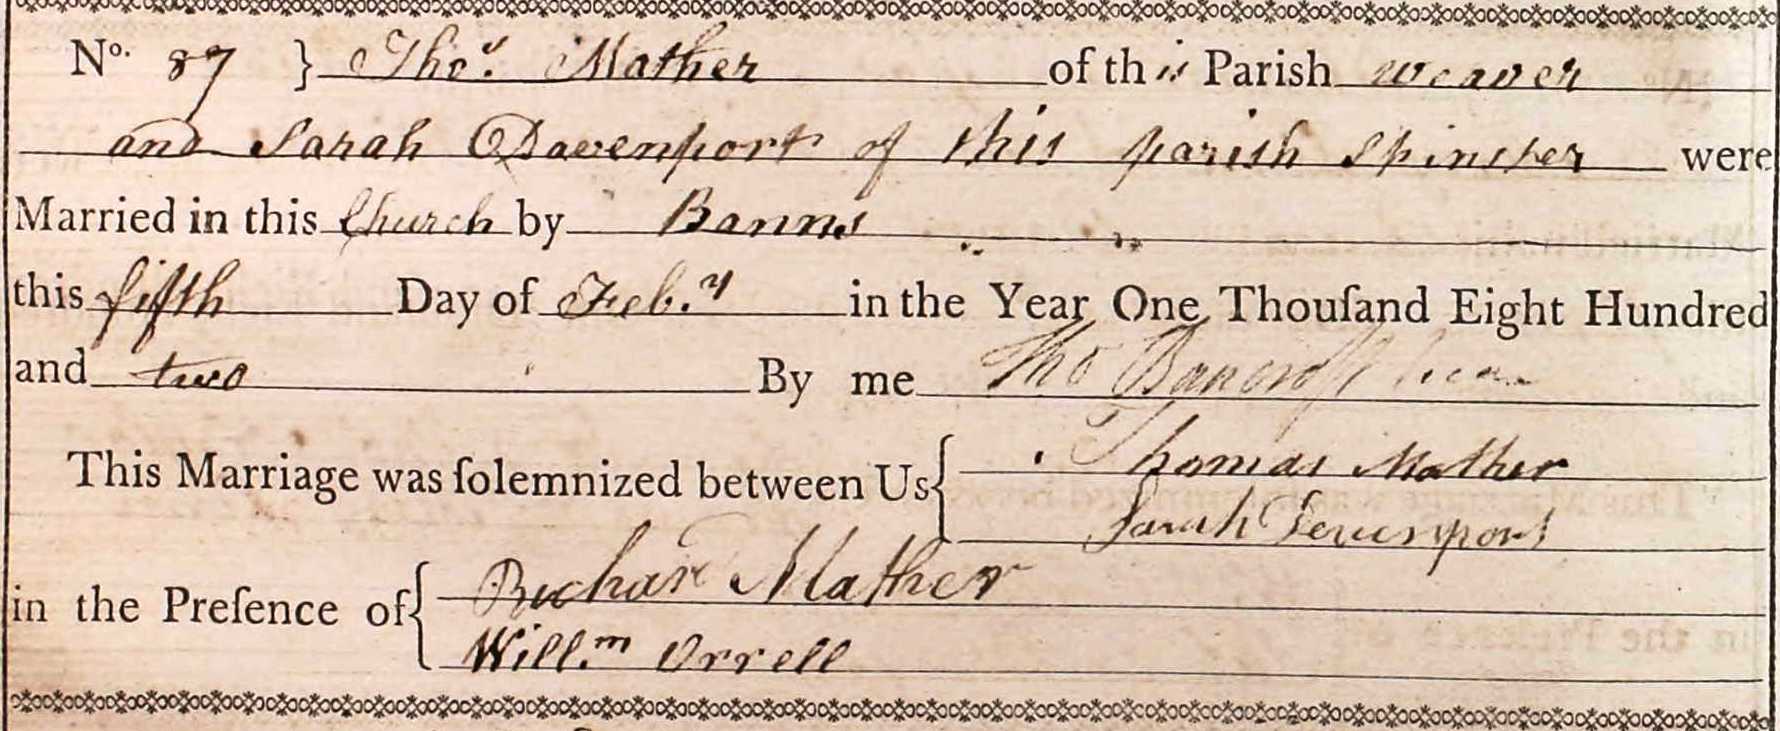 No. 87 } Thos. Mather of this Parish weaver
and Sarah Davenport of this parish Spinster were
Married in this Church by Banns
this fifth Day of Feb.y in the Year One Thouſand Eight Hundred
and two By me Tho Bancroft Vicar
This Marriage was ſolemnized between Us { Thomas Mather
Sarah Devenport
in the Preſence of { Richard Mather
Will.m Orrell